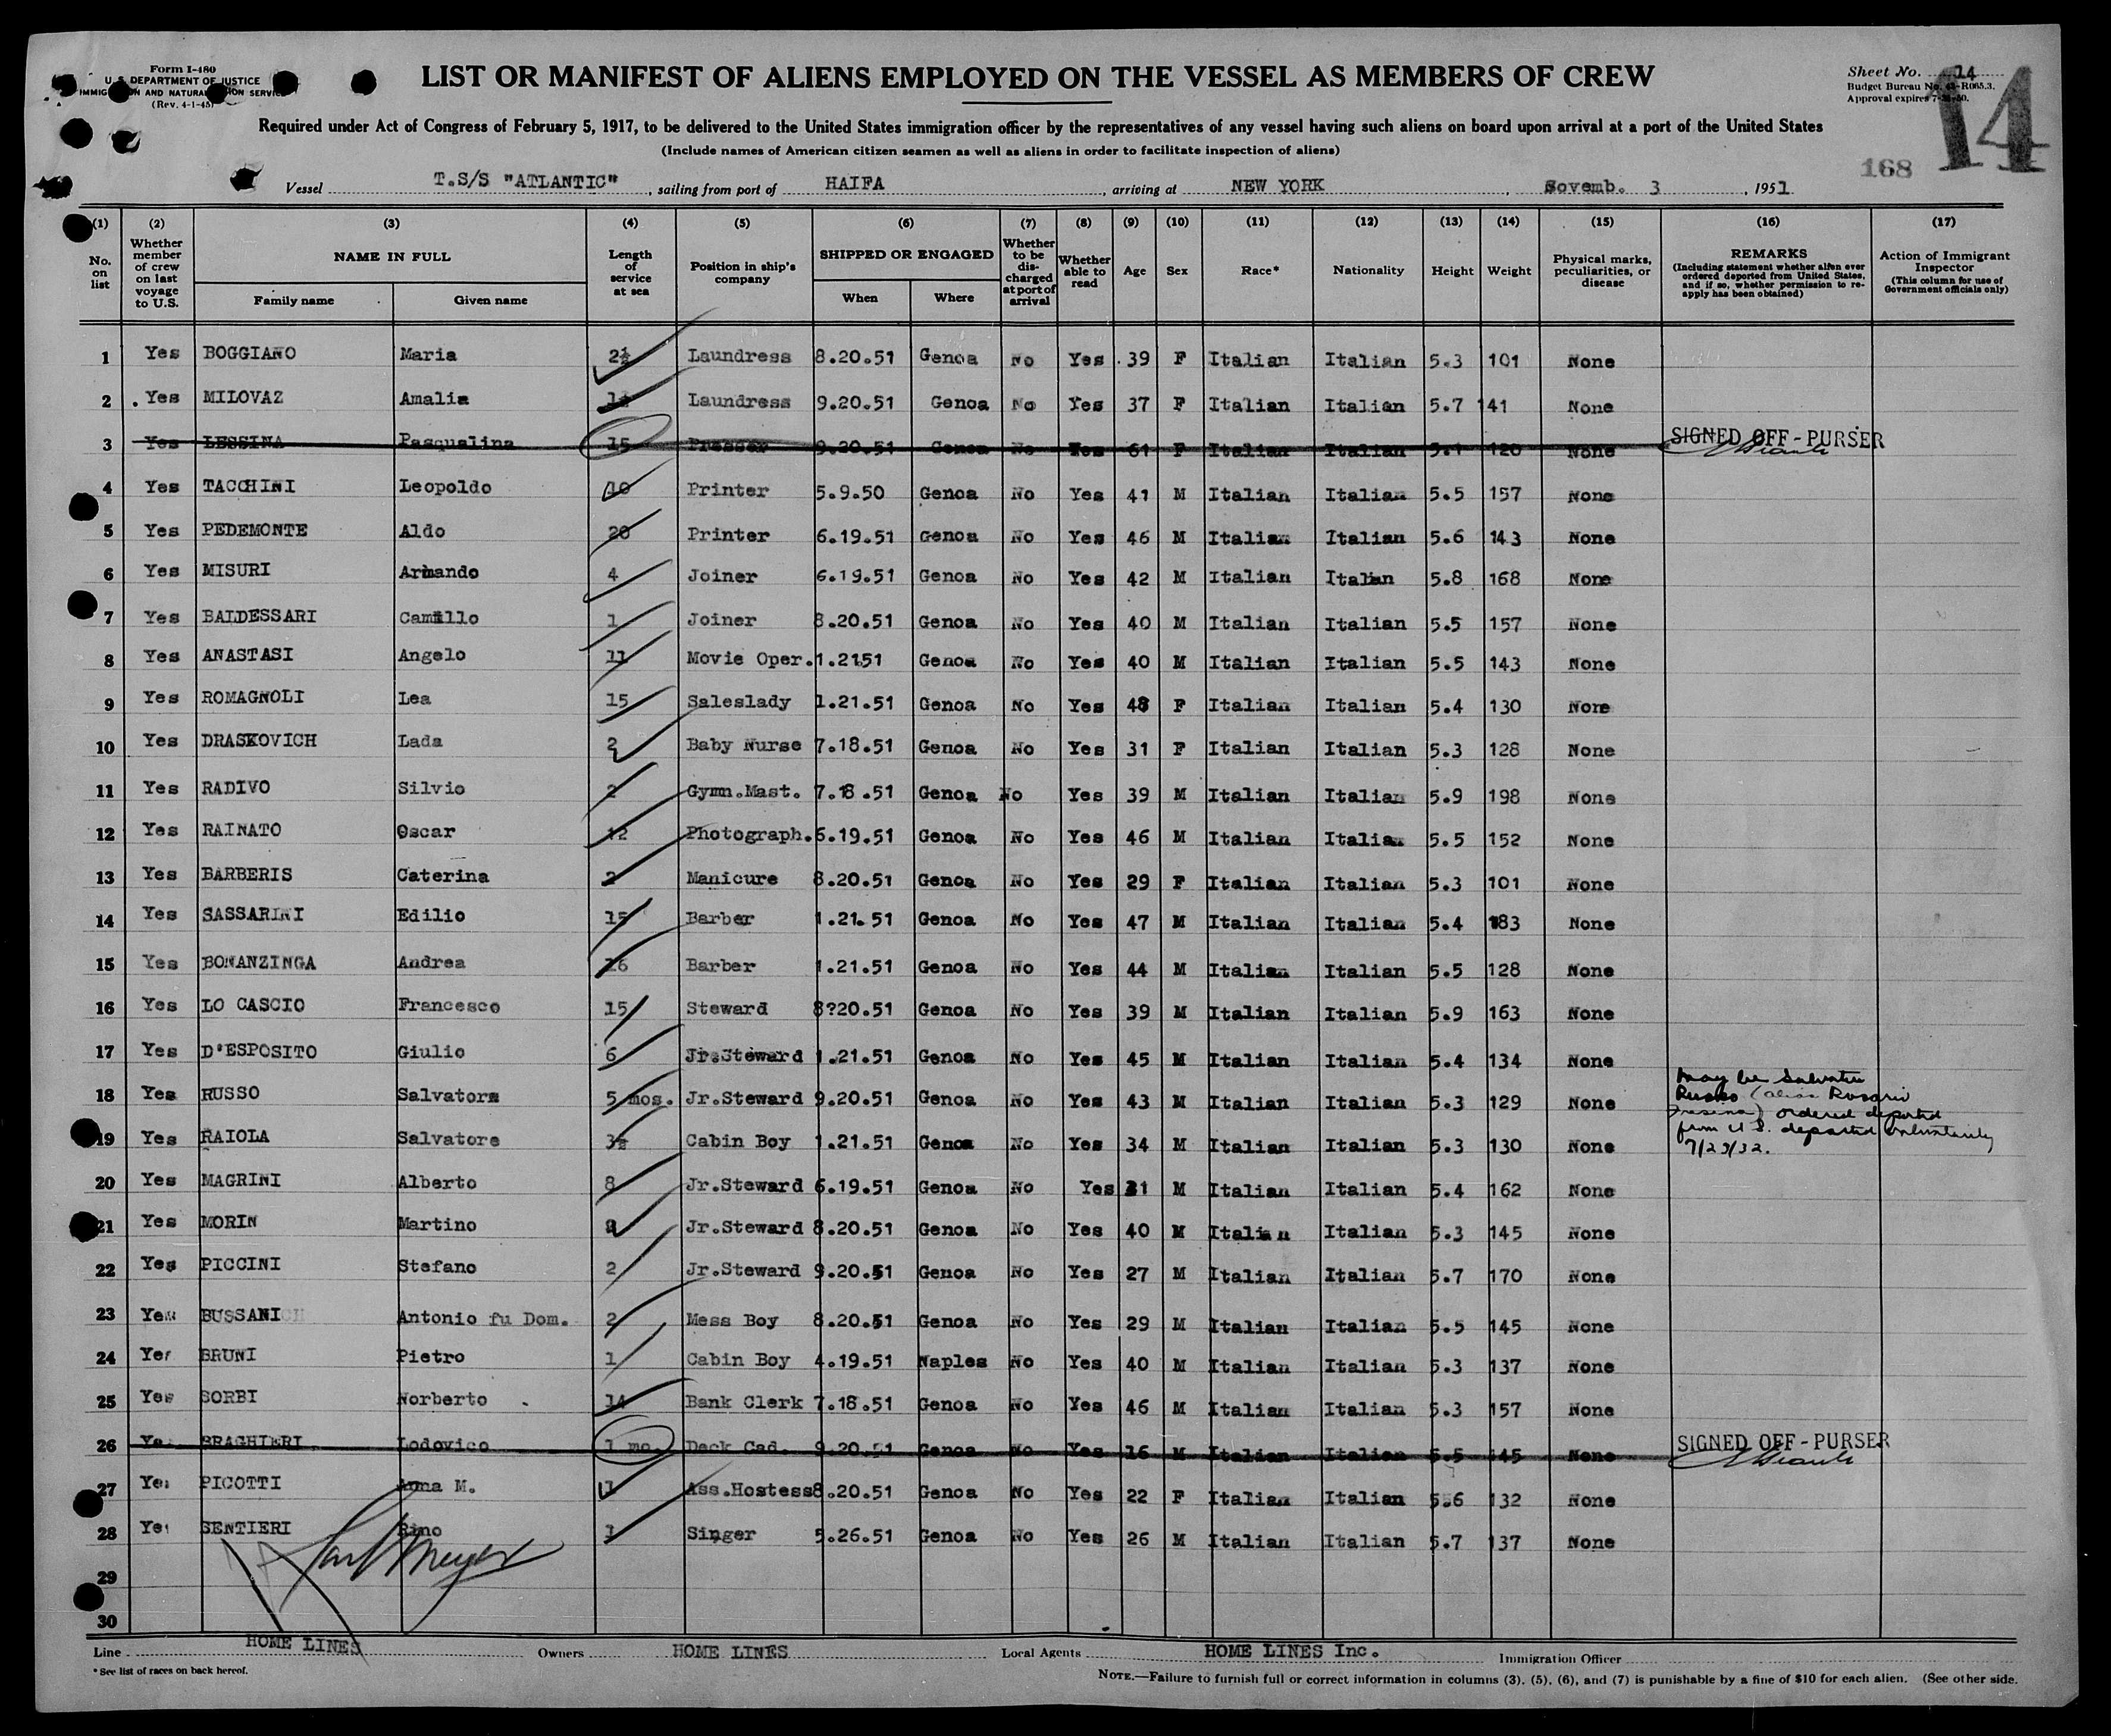 Form I-480
U. S. DEPARTMENT OF JUSTICE
IMMIGRATION AND NATURALIZATION SERVICE
(Rev. 4-1-45)
LIST OR MANIFEST OF ALIENS EMPLOYED ON THE VESSEL AS MEMBERS OF CREW
Sheet No. 14
Budget Bureau No. 43-R065.3.
Approval expires
14
168
Required under Act of Congress of February 5, 1917, to be delivered to the United States immigration officer by the representatives of any vessel having such aliens on board upon arrival at a port of the United States
(Include names of American citizen seamen as well as aliens in order to facilitate inspection of aliens)
Vessel T.S/S "ATLANTIC", sailing from port of HAIFA, arriving at NEW YORK, Novemb. 3, 1951
(1) (2) (3) (4) (5) (6) (7) (8) (9) (10) (11) (12) (13) (14) (15) (16) (17)
No. on list
Whether member of crew on last voyage to U.S.
NAME IN FULL
Family name
Given name
Length of service at sea
Position in ship's company
SHIPPED OR ENGAGED
When
Where
Whether to be discharged at port of arrival
Whether able to read
Age
Sex
Race*
Nationality
Height
Weight
Physical marks, peculiarities, or disease
REMARKS
(Including statement whether alien ever ordered deported from United States, and if so, whether permission to re-apply has been obtained)
Action of Immigrant Inspector
(This column for use of Government officials only)
1 Yes BOGGIANO Maria 2½ Laundress 8.20.51 Genoa No Yes 39 F Italian Italian 5.3 101 None
2 Yes MILOVAZ Amalia Laundress 9.20.51 Genoa No Yes 37 F Italian Italian 5.7 141 None
3 Yes LESSINA Pasqualina 15 Presser 9.20.51 Genoa No Yes 61 F Italian Italian 5.1 120 None SIGNED OFF - PURSER
4 Yes TACCHINI Leopoldo 10 Printer 5.9.50 Genoa No Yes 41 M Italian Italian 5.5 157 None
5 Yes PEDEMONTE Aldo 20 Printer 6.19.51 Genoa No Yes 46 M Italian Italian 5.6 143 None
6 Yes MISURI Armando 4 Joiner 6.19.51 Genoa No Yes 42 M Italian Italian 5.8 168 None
7 Yes BALDESSARI Camillo 1 Joiner 8.20.51 Genoa No Yes 40 M Italian Italian 5.5 157 None
8 Yes ANASTASI Angelo 11 Movie Oper. 1.2151 Genoa No Yes 40 M Italian Italian 5.5 143 None
9 Yes ROMAGNOLI Lea 15 Saleslady 1.21.51 Genoa No Yes 48 F Italian Italian 5.4 130 None
10 Yes DRASKOVICH Lada 2 Baby Nurse 7.18.51 Genoa No Yes 31 F Italian Italian 5.3 128 None
11 Yes RADIVO Silvio 2 Gymn.Mast. 7.18.51 Genoa No Yes 39 M Italian Italian 5.9 198 None
12 Yes RAINATO Oscar 12 Photograph. 6.19.51 Genoa No Yes 46 M Italian Italian 5.5 152 None
13 Yes BARBERIS Caterina 2 Manicure 8.20.51 Genoa No Yes 29 F Italian Italian 5.3 101 None
14 Yes SASSARINI Edilio 15 Barber 1.21.51 Genoa No Yes 47 M Italian Italian 5.4 183 None
15 Yes BONANZINGA Andrea 16 Barber 1.21.51 Genoa No Yes 44 M Italian Italian 5.5 128 None
16 Yes LO CASCIO Francesco 15 Steward 8?20.51 Genoa No Yes 39 M Italian Italian 5.9 163 None
17 Yes D'ESPOSITO Giulio 6 Jr.Steward 1.21.51 Genoa No Yes 45 M Italian Italian 5.4 134 None
18 Yes RUSSO Salvatore 5 mos. Jr.Steward 9.20.51 Genoa No Yes 43 M Italian Italian 5.3 129 None
May be Salvatore
Russo (alias Rosario
) ordered deported
from U.S. departed voluntarily
7/23/32.
19 Yes RAIOLA Salvatore 3½ Cabin Boy 1.21.51 Genoa No Yes 34 M Italian Italian 5.3 130 None
20 Yes MAGRINI Alberto 8 Jr.Steward 6.19.51 Genoa No Yes 31 M Italian Italian 5.4 162 None
21 Yes MORIN Martino Jr.Steward 8.20.51 Genoa No Yes 40 M Italian Italian 5.3 145 None
22 Yes PICCINI Stefano 2 Jr.Steward 9.20.51 Genoa No Yes 27 M Italian Italian 5.7 170 None
23 Yes BUSSANICH Antonio fu Dom. 2 Mess Boy 8.20.51 Genoa No Yes 29 M Italian Italian 5.5 145 None
24 Yes BRUNI Pietro 1 Cabin Boy 4.19.51 Naples No Yes 40 M Italian Italian 5.3 137 None
25 Yes SORBI Norberto 14 Bank Clerk 7.18.51 Genoa No Yes 46 M Italian Italian 5.3 157 None
26 Yes BRAGHIERI Lodovico 1 mo. Deck Cad. 9.20.51 Genoa No Yes 16 M Italian Italian 5.5 145 None SIGNED OFF - PURSER
27 Yes PICOTTI Anna M. 1 Ass.Hostess 8.20.51 Genoa No Yes 22 F Italian Italian 5.6 132 None
28 Yes SENTIERI Rino 1 Singer 5.26.51 Genoa No Yes 26 M Italian Italian 5.7 137 None
29
30
Line HOME LINES Owners HOME LINES Local Agents HOME LINES Inc. Immigration Officer
* See list of races on back hereof.
NOTE.—Failure to furnish full or correct information in columns (3), (5), (6), and (7) is punishable by a fine of $10 for each alien. (See other side.